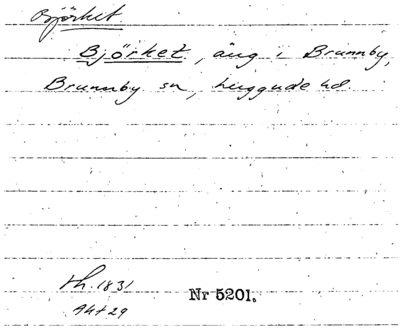 Björket
Björket, äng i Brunnby,
Brunnby sn, Luggude hd.
Lh. 1831
Akt 29
Nr 5201.